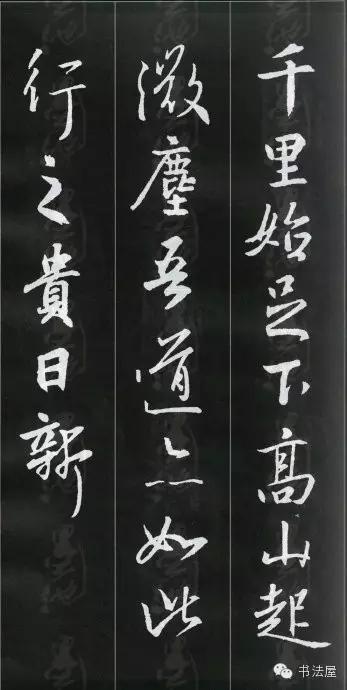 千里始足下高山起
微塵吾道亦如此
行之貴日新
书法屋